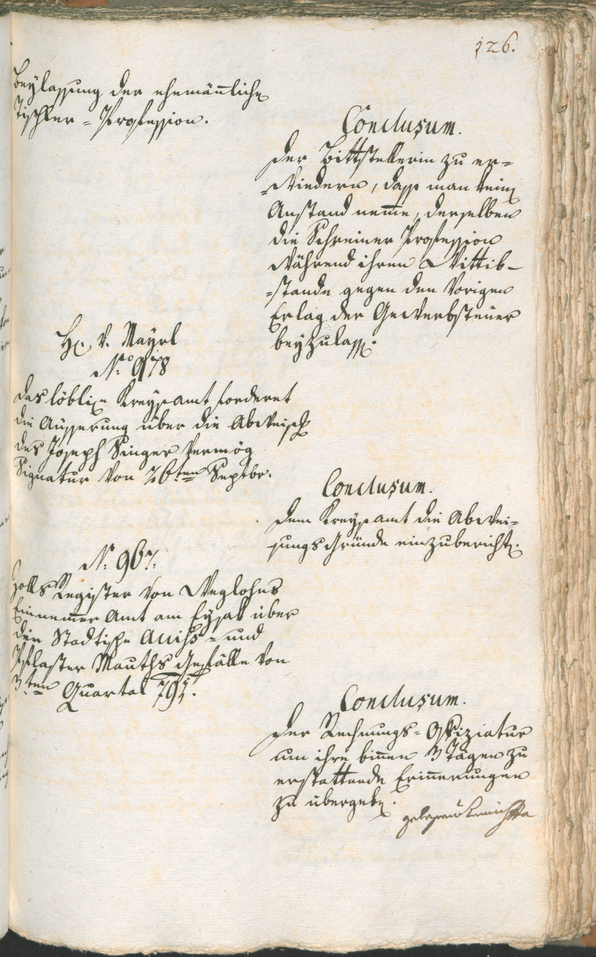 126.
Beylassung der ehemännliche
Tischler-Profession.
Conclusum.
Der Bittstellerin zu er-
-wiedern, dass man kein
Anstand nemme, derselben
die Schreiner Profession
während ihren Wittib-
-stande gegen den vorigen
Erlag der Gewerbsteuer
beyzulass.
H. v. Mayrl
No. 978
Das löbliche Kreysamt forderet
die Äusserung über die Abweisg
des Joseph Singer vermög
Signatur von 26ten Septbr.
Conclusum.
Dem Kreysamt die Abwei-
sungs Gründe einzubericht.
N. 967.
Zolls Register von Weglohns
Einnemmer Amt am Eysak über
den Stadtische Aufschl- und
Pflaster Mauths Gefälle von
3ten Quartal 791.
Conclusum.
Der Rechnungs-Offiziatur
um ihre binnen 3 Tägen zu
erstattende Erinnerungen
zu übergeb.